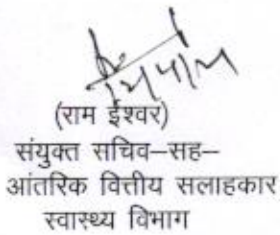 (राम ईश्वर)
संयुक्त सचिव–सह–
आंतरिक वित्तीय सलाहकार
स्वास्थ्य विभाग